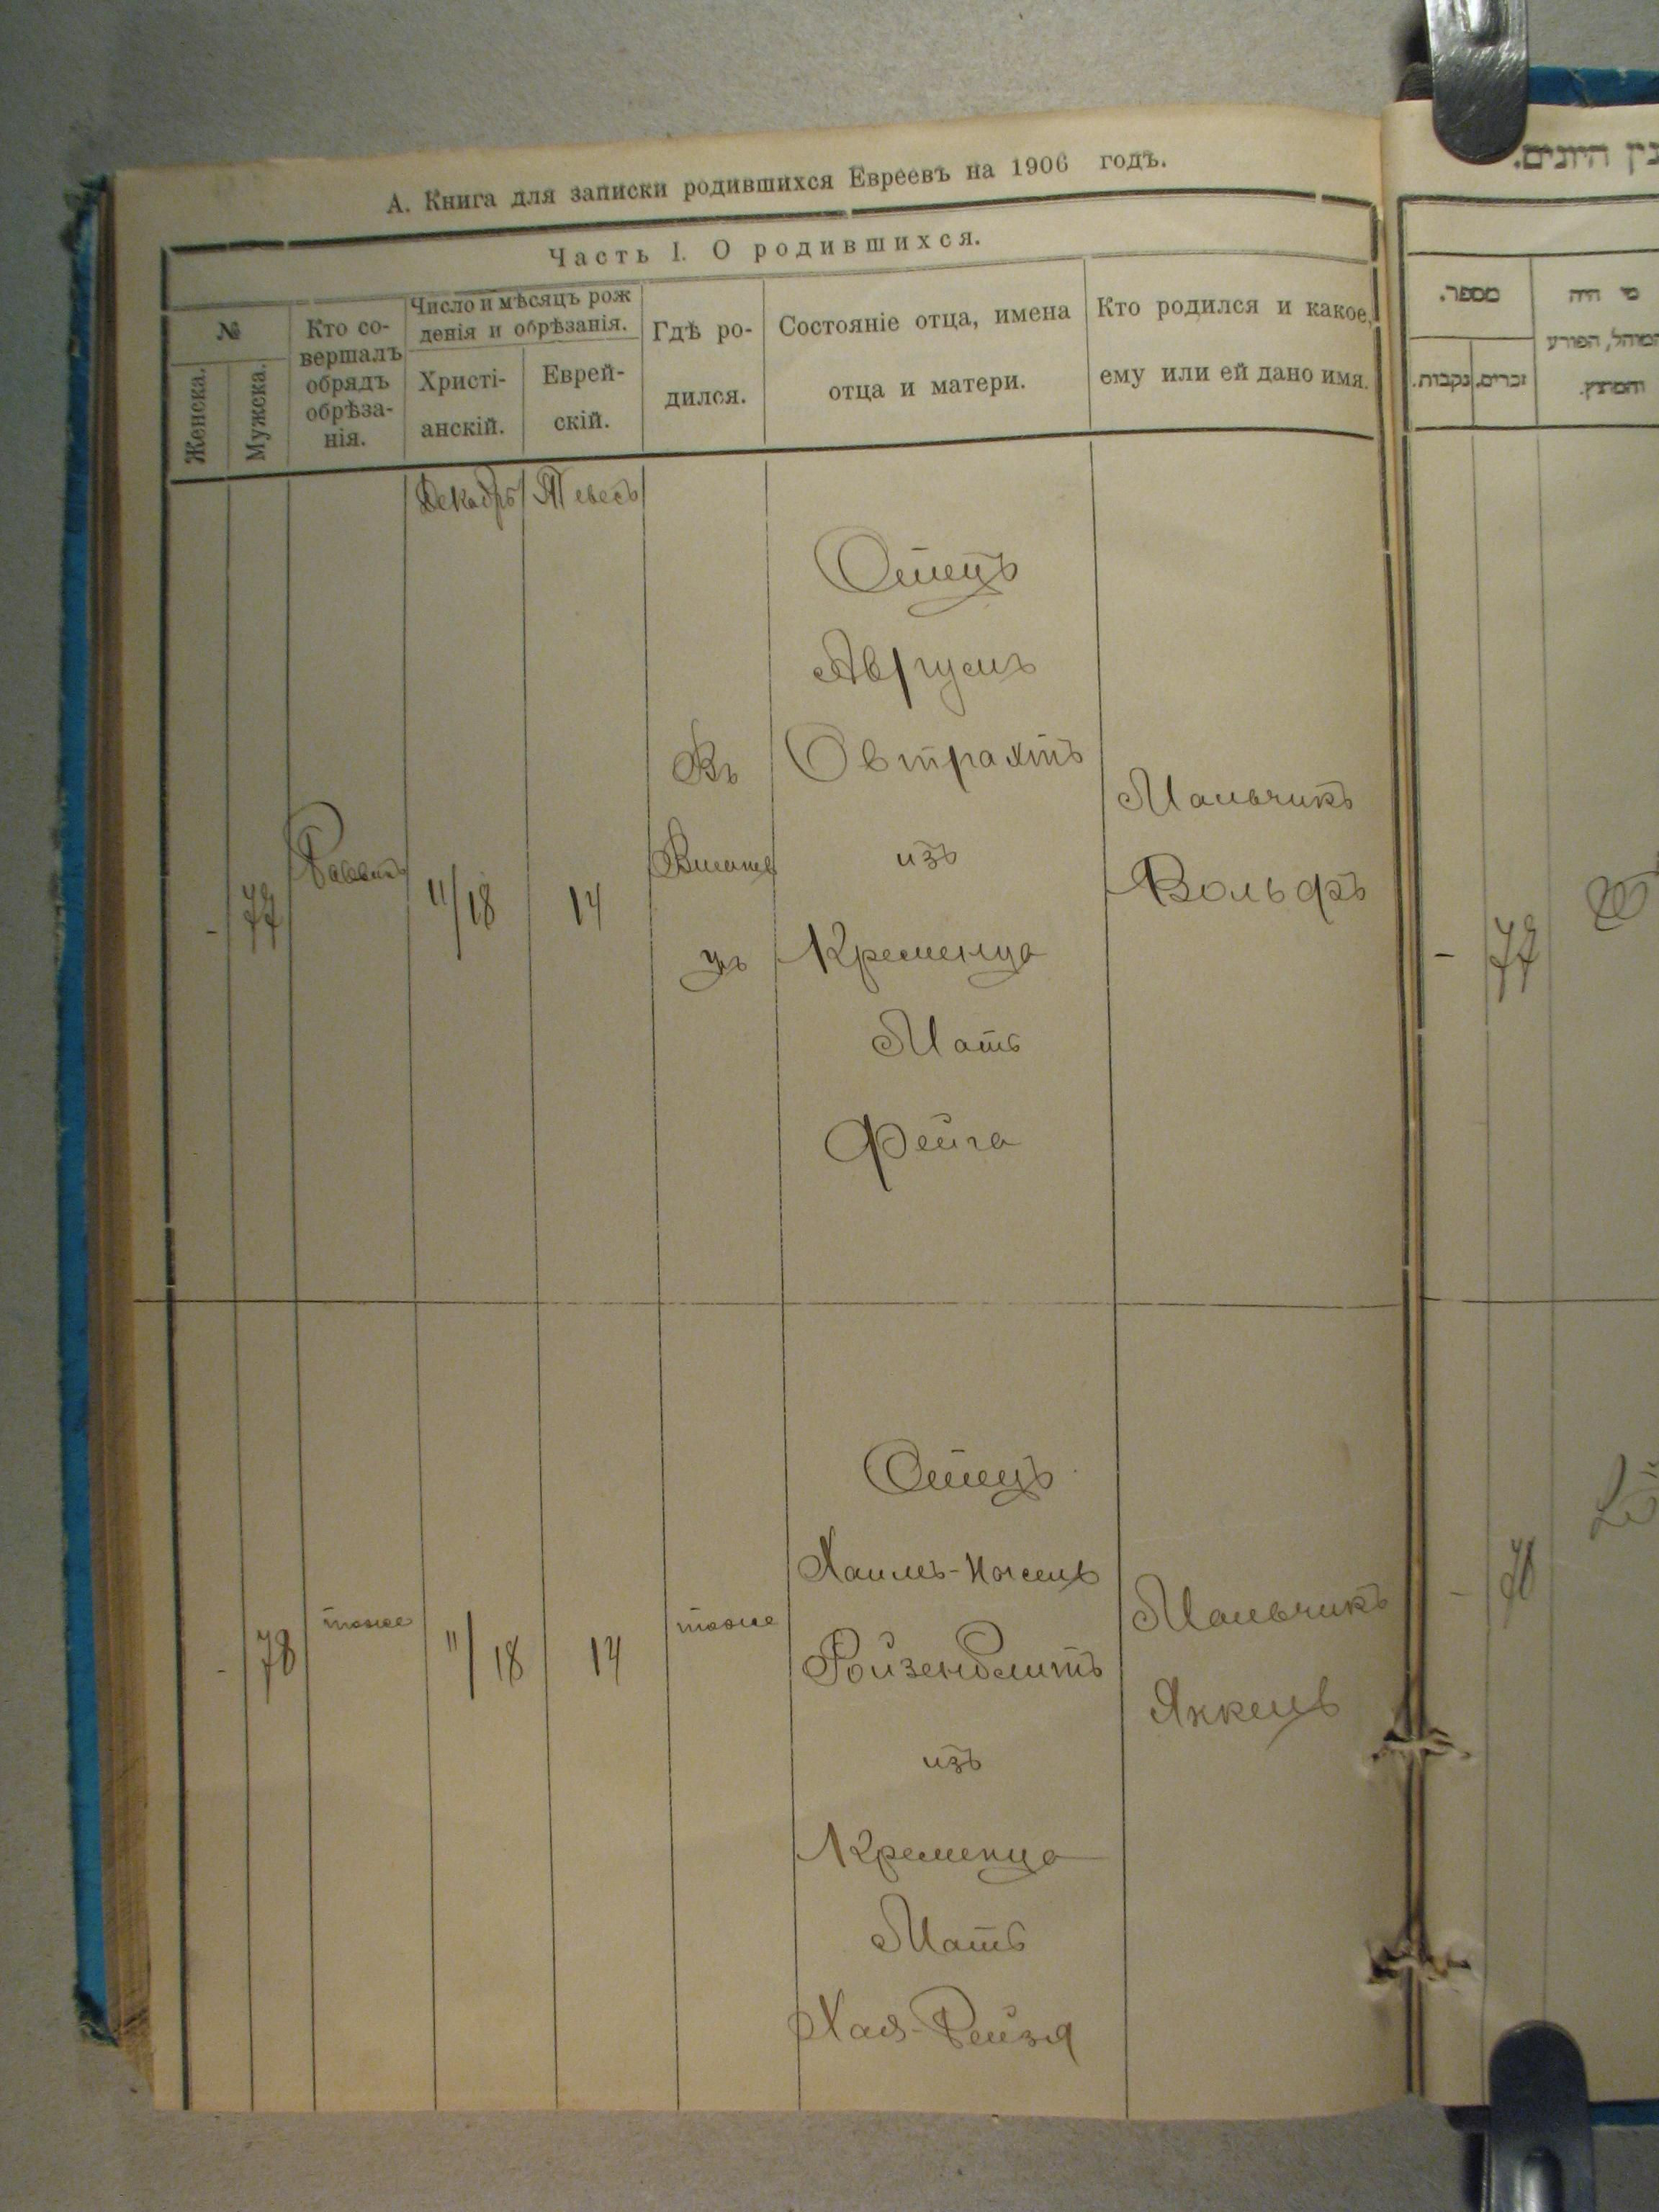 А. Книга для записки родившихся Евреевъ на 1906 годъ.
Часть I. О родившихся.
№
Женска.
Мужска.
Кто со-
вершалъ
обрядъ
обрѣза-
нія.
Число и мѣсяцъ рож
денія и обрѣзанія.
Христі-
анскій.
Еврей-
скій.
Гдѣ ро-
дился.
Состояніе отца, имена
отца и матери.
Кто родился и какое,
ему или ей дано имя.
Декабрь
Тевесъ
-
77
Раввинъ
11/18
14
Въ
Вишнев
цѣ
Отецъ
Аврумъ
Овтрахтъ
изъ
Кременца
Мать
Фейга
Мальчикъ
Вольфъ
-
78
тоже
11/18
14
тоже
Отецъ
Хаимъ-
Ройзенблитъ
изъ
Кременца
Мать
Хая-Рейзя
Мальчикъ
Янкель
מספר.
זכרים.
נקבות.
מי היה
המוהל, הפורע
והמוצץ.
-
77
-
78